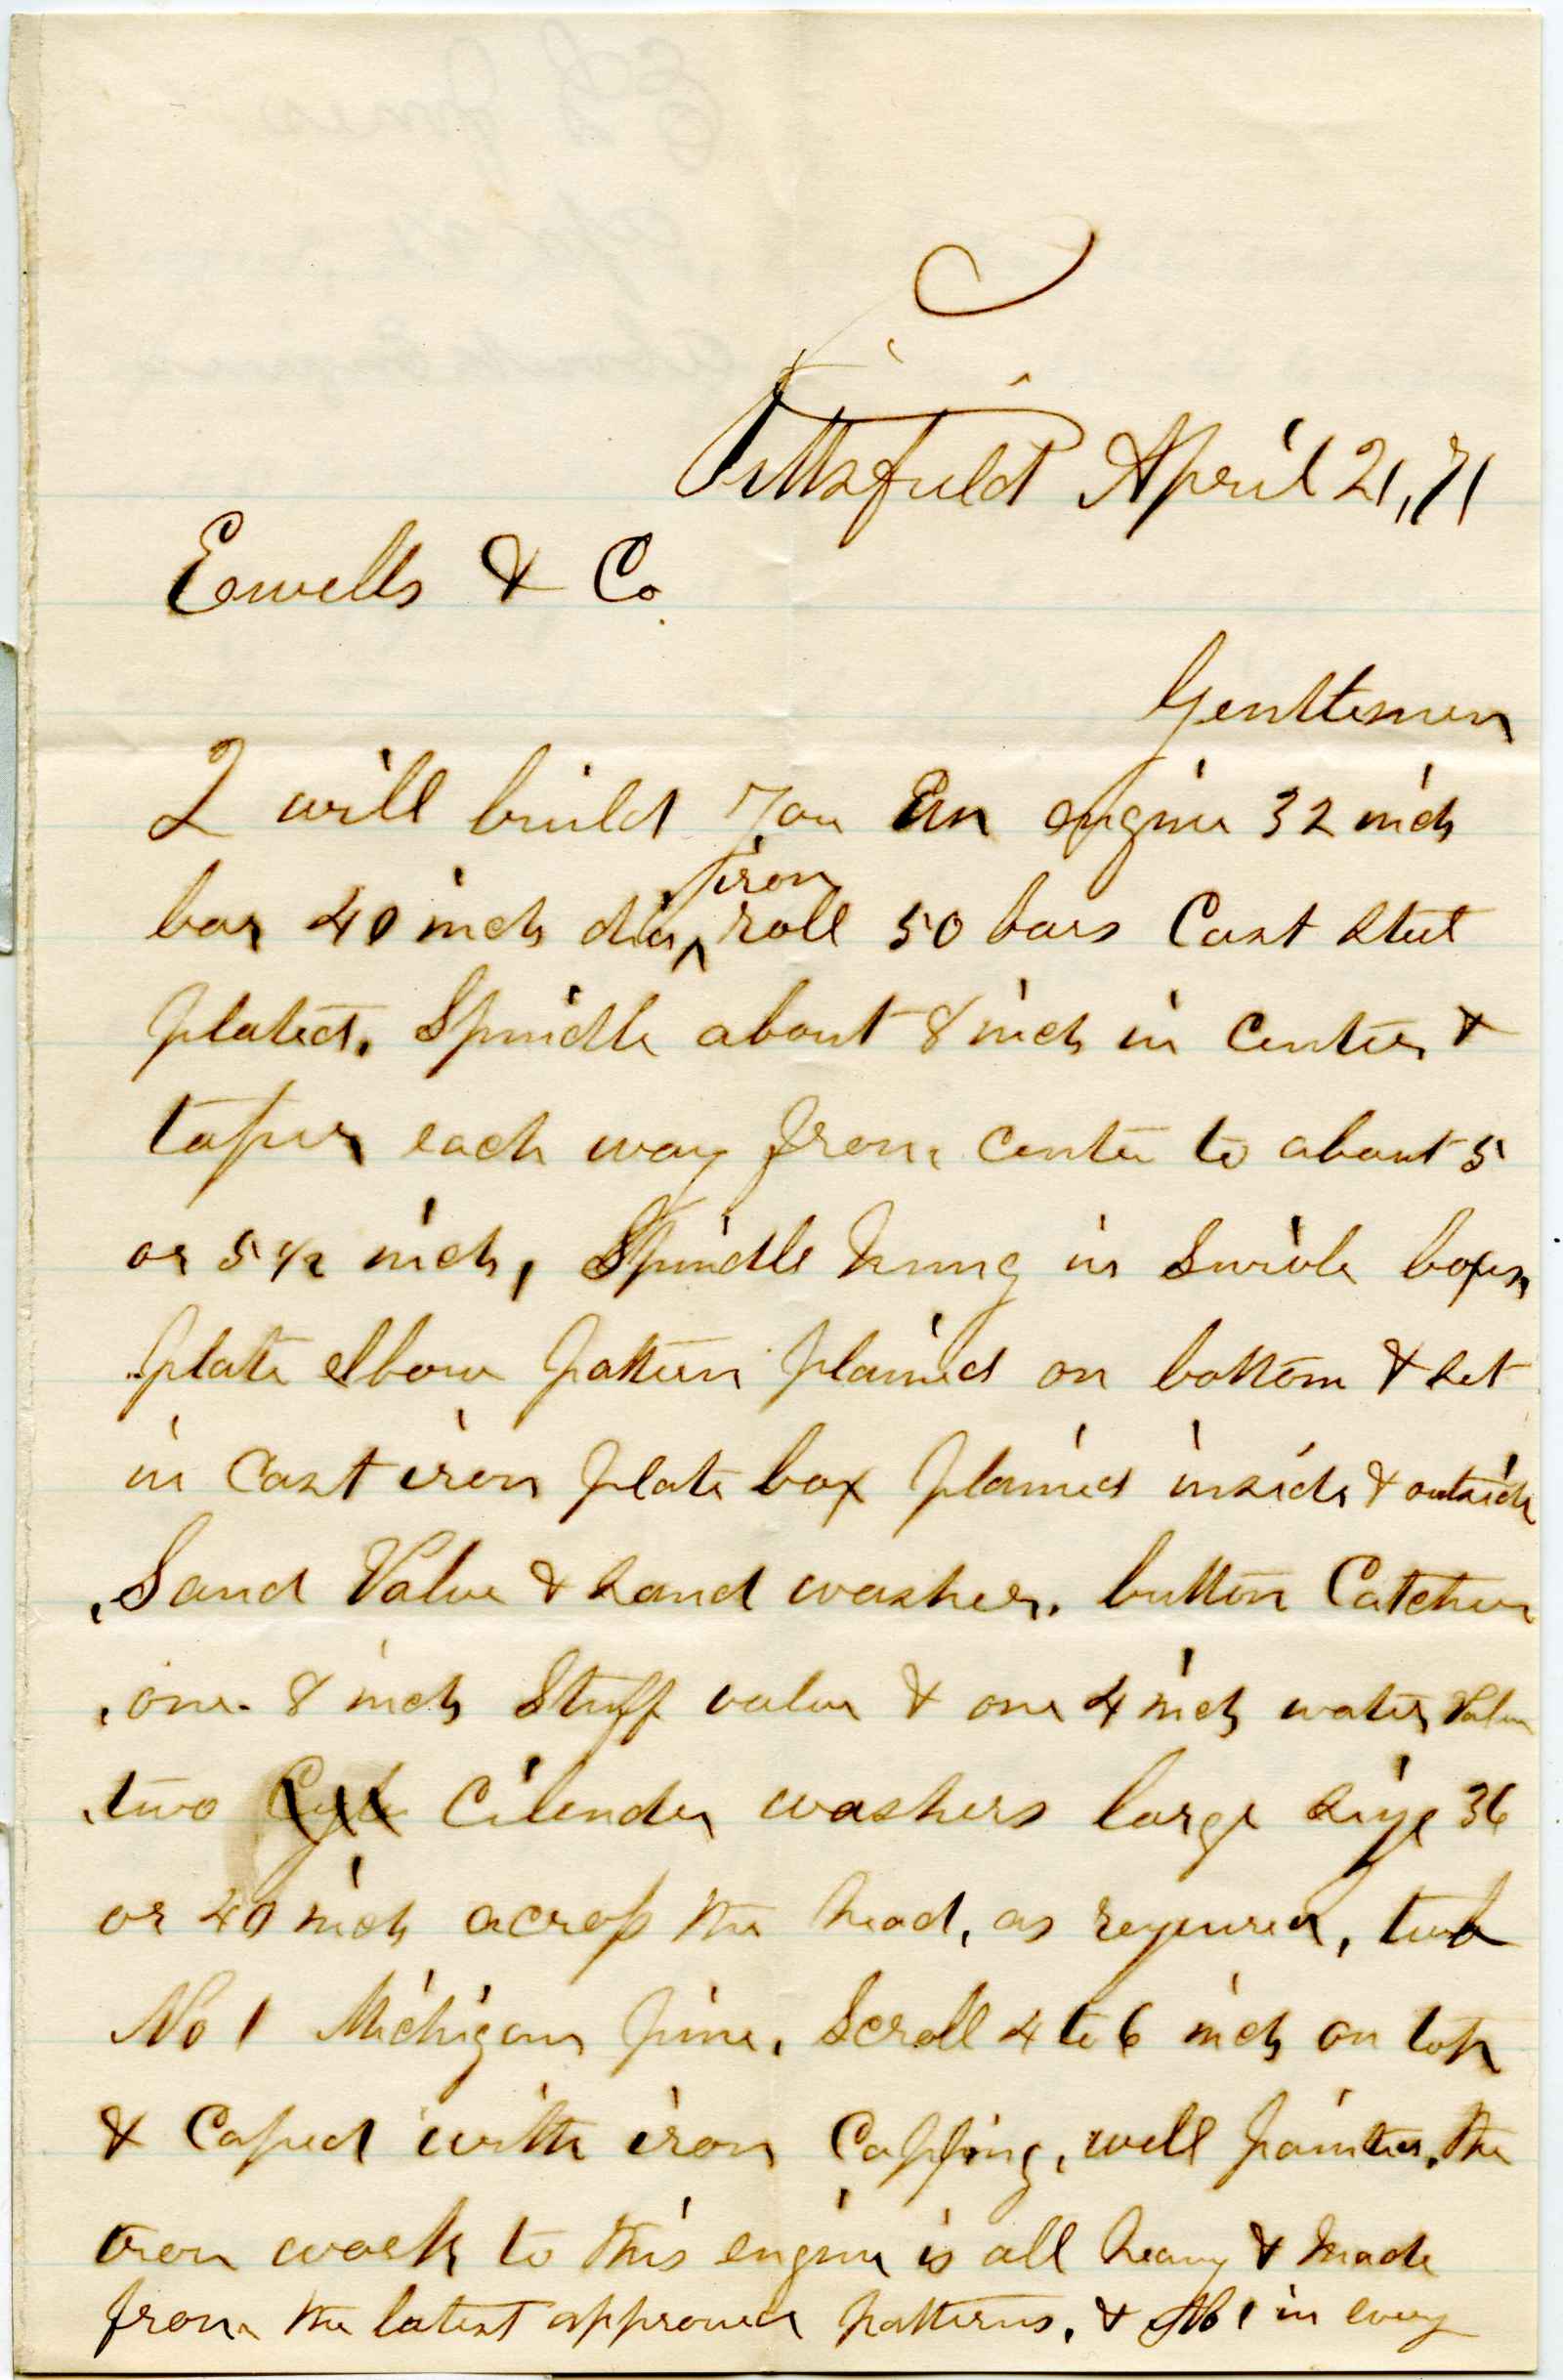 Pittsfield April 21, 71
Ewells & Co.
Gentlemen
I will build you an engine 32 inch
bar 40 inch dia iron roll 50 bars Cast Steel
plated. Spindle about 8 inch in Center &
taper each way from center to about 5
or 5 1/2 inch, Spindle hung in Swivle boxes,
plate elbow pattern plained on bottom & set
in Cast iron plate box plained inside & outside
Sand Valve & sand washer. button Catcher
one 8 inch Stuff valve & one 4 inch water Valve
two Cyl Cilender washers large size 36
or 40 inch across the head, as required, tub
No 1 Michigan pine. Scroll 4 to 6 inch on top
& Caped with iron Capping, well painted. The
iron work to this engine is all heavy & made
from the latest approved patterns. & No 1 in every